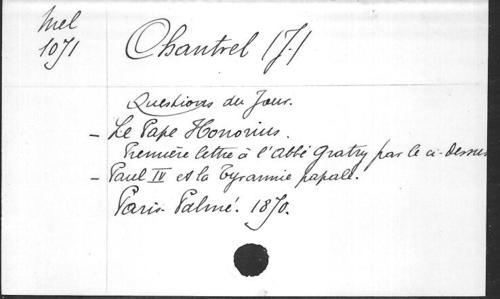 Mel
1071
Chantrel (J.)
Questions du Jour.
- Le Pape Honorius.
Première lettre à l'Abbé Gratry par le ci-dessus
- Paul IV et la Tyrannie papale.
Paris. Palmé. 1870.